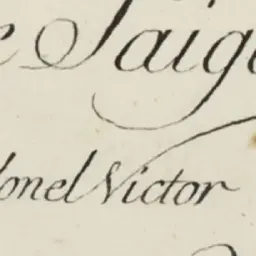 e Saig
lonel Victor